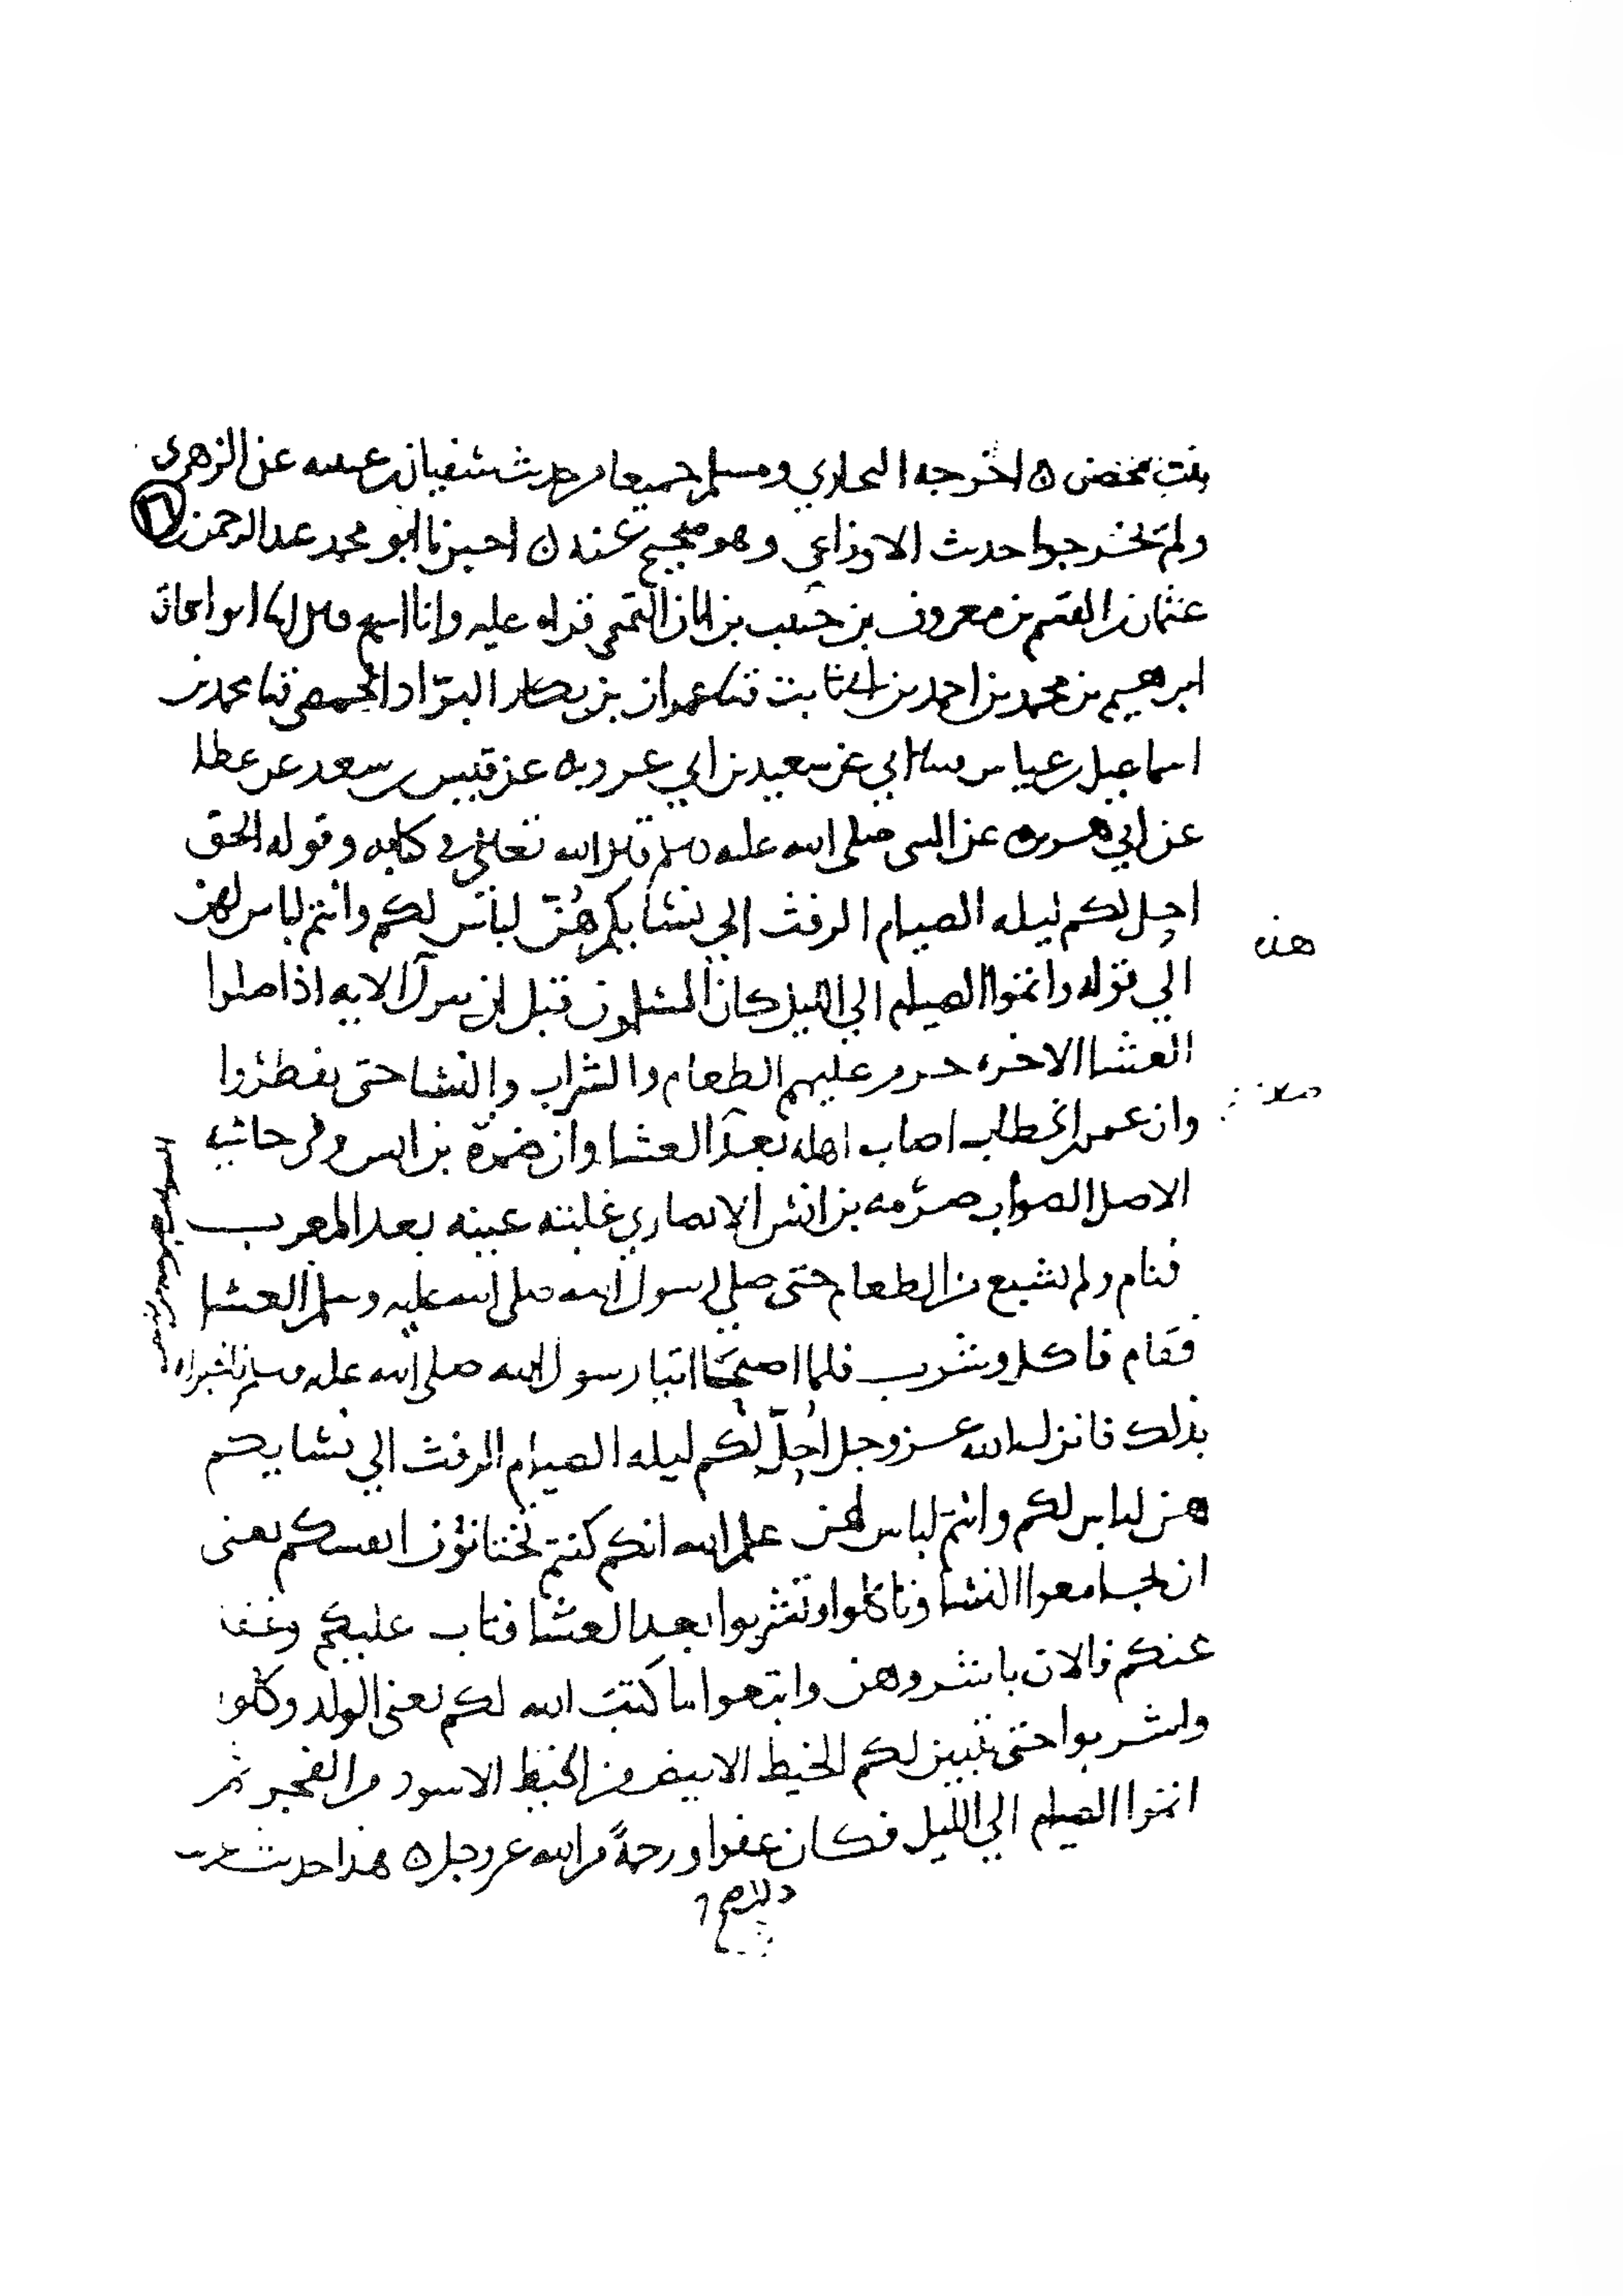 بنت محصن ٥ اخرجه البخاري ومسلم جميعا من حديث سفيان بن عيينه عن الزهري
ولم يخرجوا حديث الاوزاعي وهو صحيح عنه ٥ اخبرنا ابو محمد عبد الرحمن بن
عثمان بن القسم بن معروف بن حبيب بن ابان التميمي قراه عليه وانا اسمع قال ابنا ابو اسحاق
ابرهيم بن محمد بن احمد بن ابي ثابت ثنا عمران بن بكار البراد الحمصي ثنا محمد بن
اسماعيل بن عياش حدثنا ابي عن سعيد بن ابي عروبه عن قيس بن سعد عن عطا
عن ابي هريره عن النبي صلى الله عليه وسلم قال الله تعالى في كتابه وقوله الحق
احل لكم ليله الصيام الرفث الي نسايكم هُنّ لباس لكم وانتم لباس لهن
الي قوله واتموا الصيام الي الليل كان المسلمون قبل ان ينزل الايه اذا صلوا
العشا الاخره حرم عليهم الطعام والشراب والنسا حتى يفطروا
وان عمر بن الخطاب اصاب اهله بعد العشا وان ضمرة بن انس وفي حاشيه
الاصل الصواب صرمه بن انس الانصاري غلبته عينه بعد المغرب
فنام ولم يشبع من الطعام حتى صلي رسول الله صلى الله عليه وسلم العشا
فقام فاكل وشرب فلما اصبحا اتيا رسول الله صلى الله عليه وسلم فاخبراه
بذلك فانزل الله عز وجل اُحِلّ لكم ليله الصيام الرفث الي نسايكم
هن لباس لكم وانتم لباس لهن علم الله انكم كنتم تختانون انفسكم يعني
ان تجامعوا النسا وتاكلوا وتشربوا بعد العشا فتاب عليكم وعفا
عنكم فالان باشروهن وابتغوا ما كتبَ الله لكم يعني الولد وكلوا
واشربوا حتى يتبين لكم الخيط الابيض من الخيط الاسود من الفجر ثم
اتموا الصيام الي الليل فكان عفوا ورحمةً من الله عز وجل ٥ هذا حديث غريب
هذه